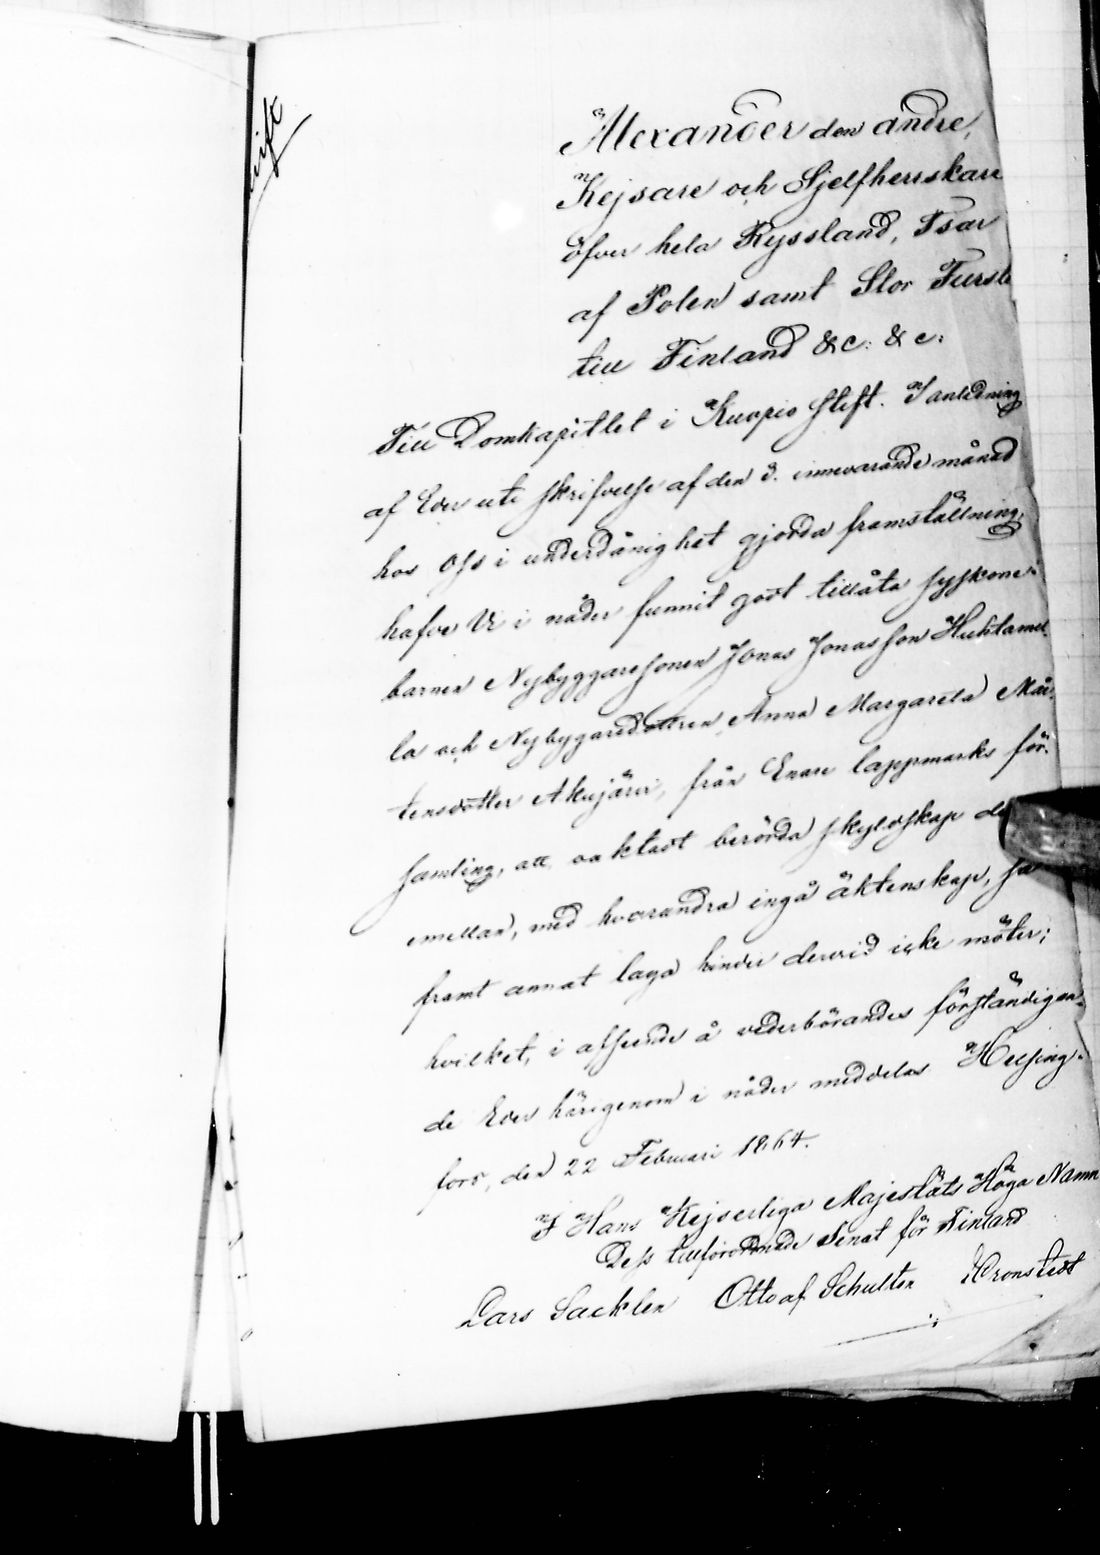 Alexander den andre,
Kejsare och Sjelfherrskare
öfver hela Ryssland, Tsar
af Polen samt Stor Furste
till Finland &c: &c:
Till Domkapitlet i Kuopio Stift. I anledning
af Eder uti skrifvelse af den 3. innevarande månad
hos Oss i underdånighet gjorda framställning,
hafve Vi i nåder funnit godt tillåta syskone-
barnen Nybyggaresonen Jonas Jonasson Huhtamel-
la och Nybygaredottren Anna Margareta Mår-
tensdotter Akujärvi, från Enare lappmarks för-
samling, att, oaktadt berörda skyldskap
emellan, med hvarandra ingå äktenskap, så
framt annat laga hinder dervid icke möter;
hvilket, i afseende å vederbörandes förständigan-
de Eder härigenom i nåder meddelas Helsing-
fors, den 22 Februari 1864.
I Hans Kejserliga Majestäts Höga Namn
Dess tillförordnade Senat för Finland
Lars Sacklen Otto af Schulten Cronstedt